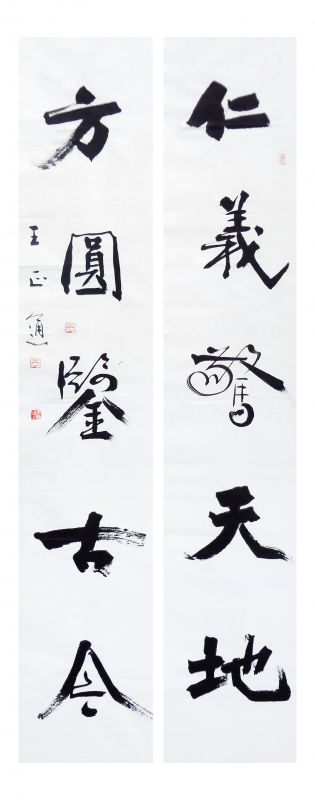 仁義驚天地
方圓鑒古今
王正通